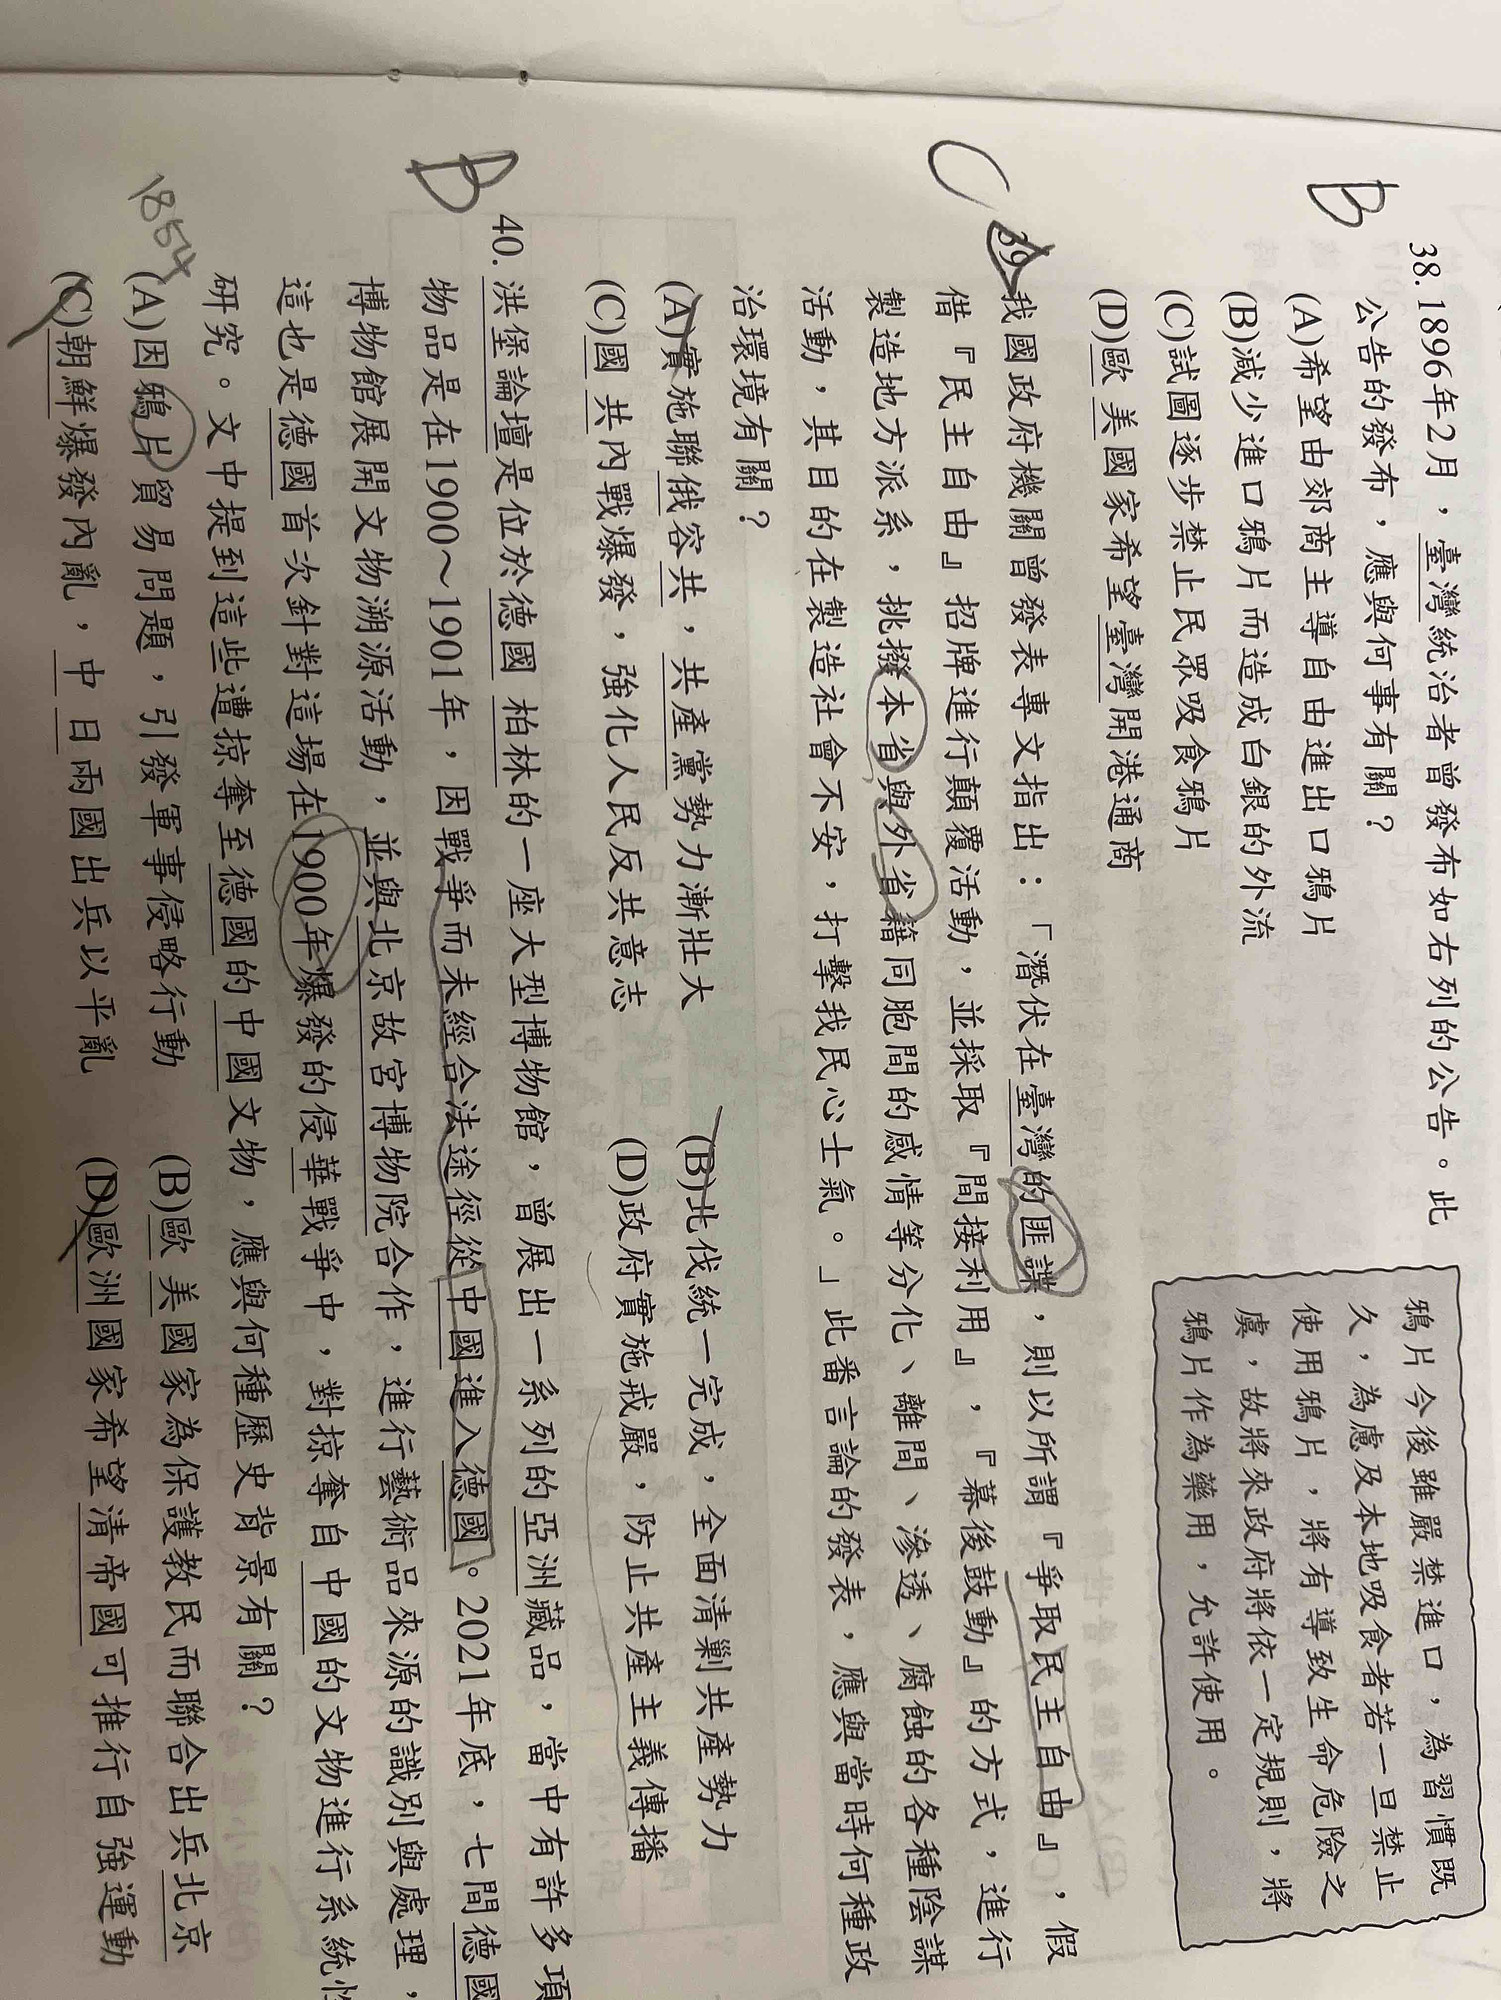 B
38. 1896年2月，臺灣統治者曾發布如右列的公告。此
公告的發布，應與何事有關？
(A)希望由郊商主導自由進出口鴉片
(B)減少進口鴉片而造成白銀的外流
(C)試圖逐步禁止民眾吸食鴉片
(D)歐美國家希望臺灣開港通商
鴉片今後雖嚴禁進口，為習慣既
久，為慮及本地吸食者若一旦禁止
使用鴉片，將有導致生命危險之
虞，故將來政府將依一定規則，將
鴉片作為藥用，允許使用。
C
39. 我國政府機關曾發表專文指出：「潛伏在臺灣的匪諜，則以所謂『爭取民主自由』，假
借『民主自由』招牌進行顛覆活動，並採取『間接利用』，『幕後鼓動』的方式，進行
製造地方派系，挑撥本省與外省籍同胞間的感情等分化、離間、滲透、腐蝕的各種陰謀
活動，其目的在製造社會不安，打擊我民心士氣。」此番言論的發表，應與當時何種政
治環境有關？
(A)實施聯俄容共，共產黨勢力漸壯大
(B)北伐統一完成，全面清剿共產勢力
(C)國共內戰爆發，強化人民反共意志
(D)政府實施戒嚴，防止共產主義傳播
B
40. 洪堡論壇是位於德國柏林的一座大型博物館，曾展出一系列的亞洲藏品，當中有許多項
物品是在1900～1901年，因戰爭而未經合法途徑從中國進入德國。2021年底，七間德國
博物館展開文物溯源活動，並與北京故宮博物院合作，進行藝術品來源的識別與處理，
這也是德國首次針對這場在1900年爆發的侵華戰爭中，對掠奪自中國的文物進行系統性
研究。文中提到這些遭掠奪至德國的中國文物，應與何種歷史背景有關？
1854
(A)因鴉片貿易問題，引發軍事侵略行動
(B)歐美國家為保護教民而聯合出兵北京
(C)朝鮮爆發內亂，中日兩國出兵以平亂
(D)歐洲國家希望清帝國可推行自強運動